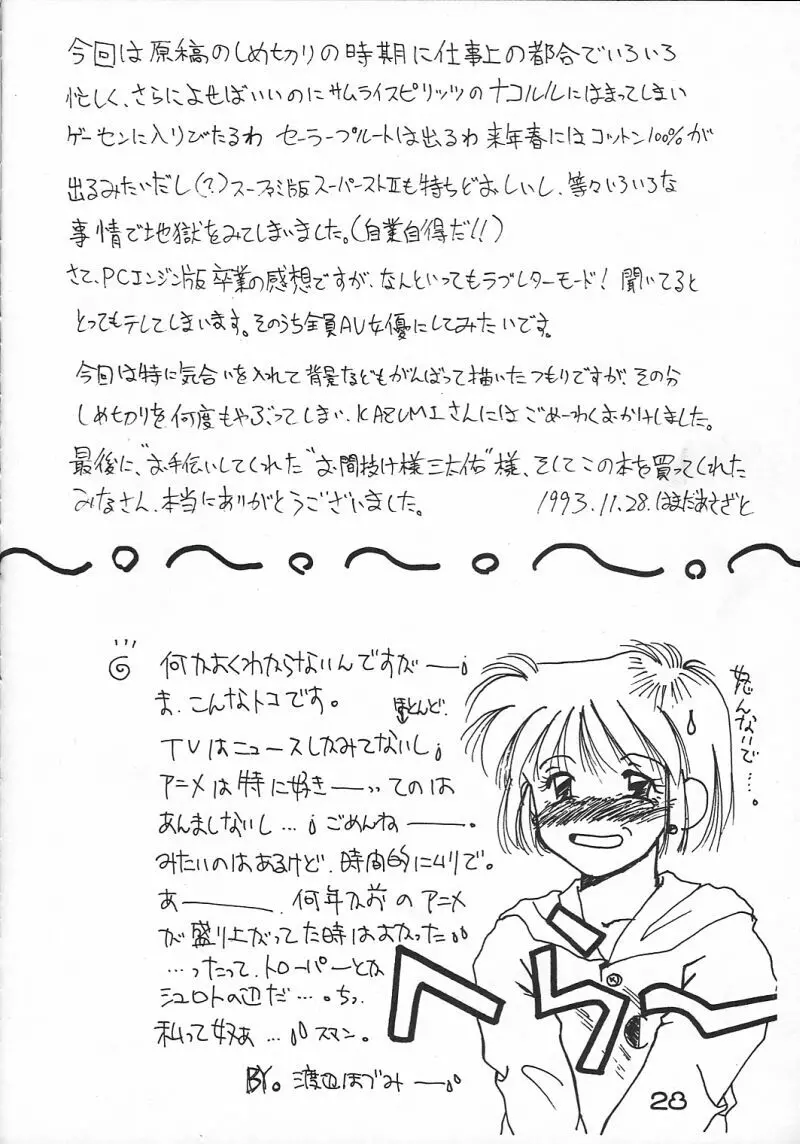 今回は原稿のしめ切りの時期に仕事上の都合でいろいろ
忙しく、さらによせばいいのにサムライスピリッツのナコルルにはまってしまい
ゲーセンに入りびたるわ セーラープルートは出るわ 来年春にはコットン100%が
出るみたいだし(?)スーファミ版スーパーストⅡも待ちどおしいし、等々いろいろな
事情で地獄をみてしまいました。(自業自得だ!!)
さて、PCエンジン版卒業の感想ですが、なんといってもラブレターモード! 聞いてると
とってもテレてしまいます。そのうち全員AV女優にしてみたいです。
今回は特に気合いを入れて背景などもがんばって描いたつもりですが、その分
しめ切りを何度もやぶってしまい、KAZUMIさんにはごめーわくおかけしました。
最後に、"お手伝いしてくれた"お間抜け様三太佑"様、そしてこの本を買ってくれた
みなさん、本当にありがとうございました。 1993.11.28.はまだあさざと
何かよくわからないんですがー
ま、こんなトコです。
ほとんど
TVはニュースしかみてないし
アニメは特に好きーってのは
あんましないし…ごめんねー。
みたいのはあるけど、時間的にムリで。
あー、何年か前のアニメ
が盛り上がってた時はよかった
…ったって、トルーパーとか
シュラトの辺だ…。ちっ
私って奴ぁ…スマン。
BY。渡辺ほづみー
怒んないで…。
へへへ
28